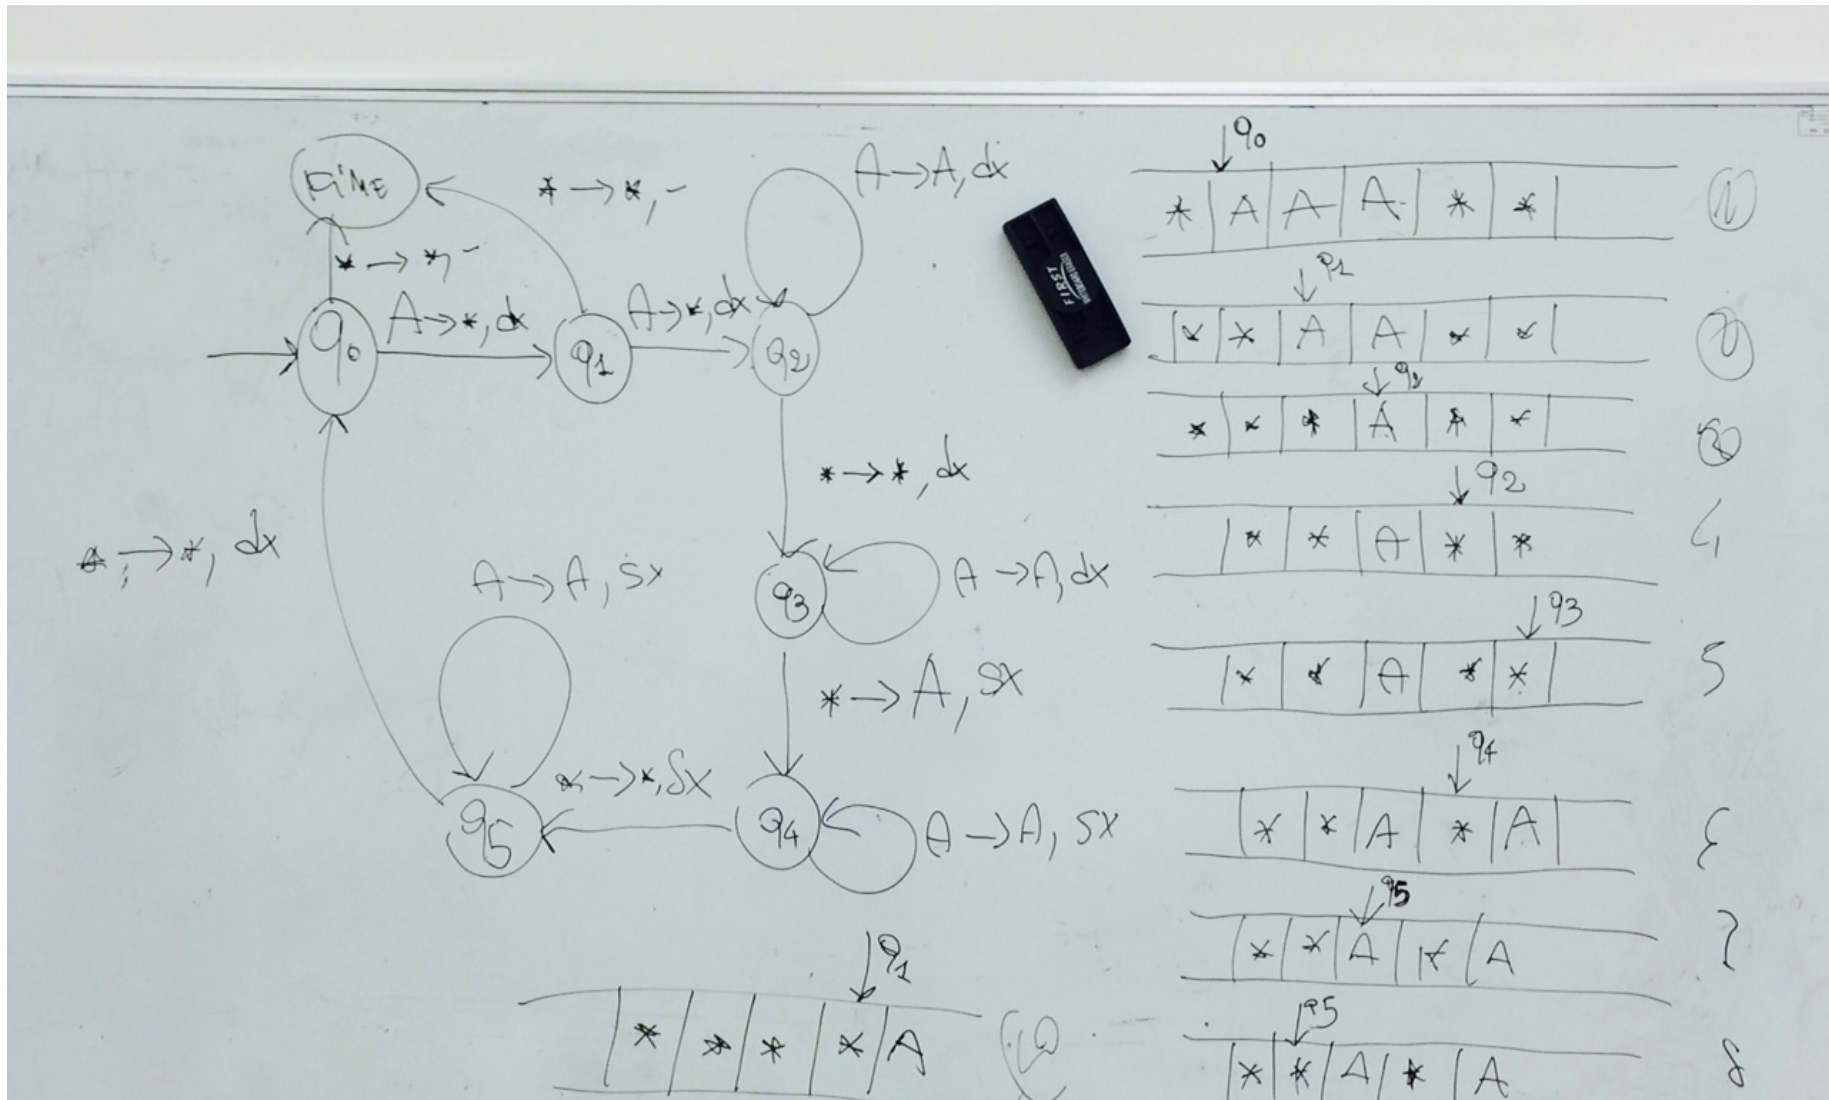 FINE
* → *, -
A → A, dx
* → *, -
q0
A → *, dx
q1
A → *, dx
q2
* → *, dx
* → *, dx
q3
A → A, dx
A → A, sx
* → A, sx
q5
* → *, sx
q4
A → A, sx
q1
* * * * A
10
FIRST
q0
* A A A * *
1
q1
* * A A * *
2
q2
* * * A * *
3
q2
* * A * *
4
q3
* * A * *
5
q4
* * A * A
6
q5
* * A * A
7
q5
* * A * A
8